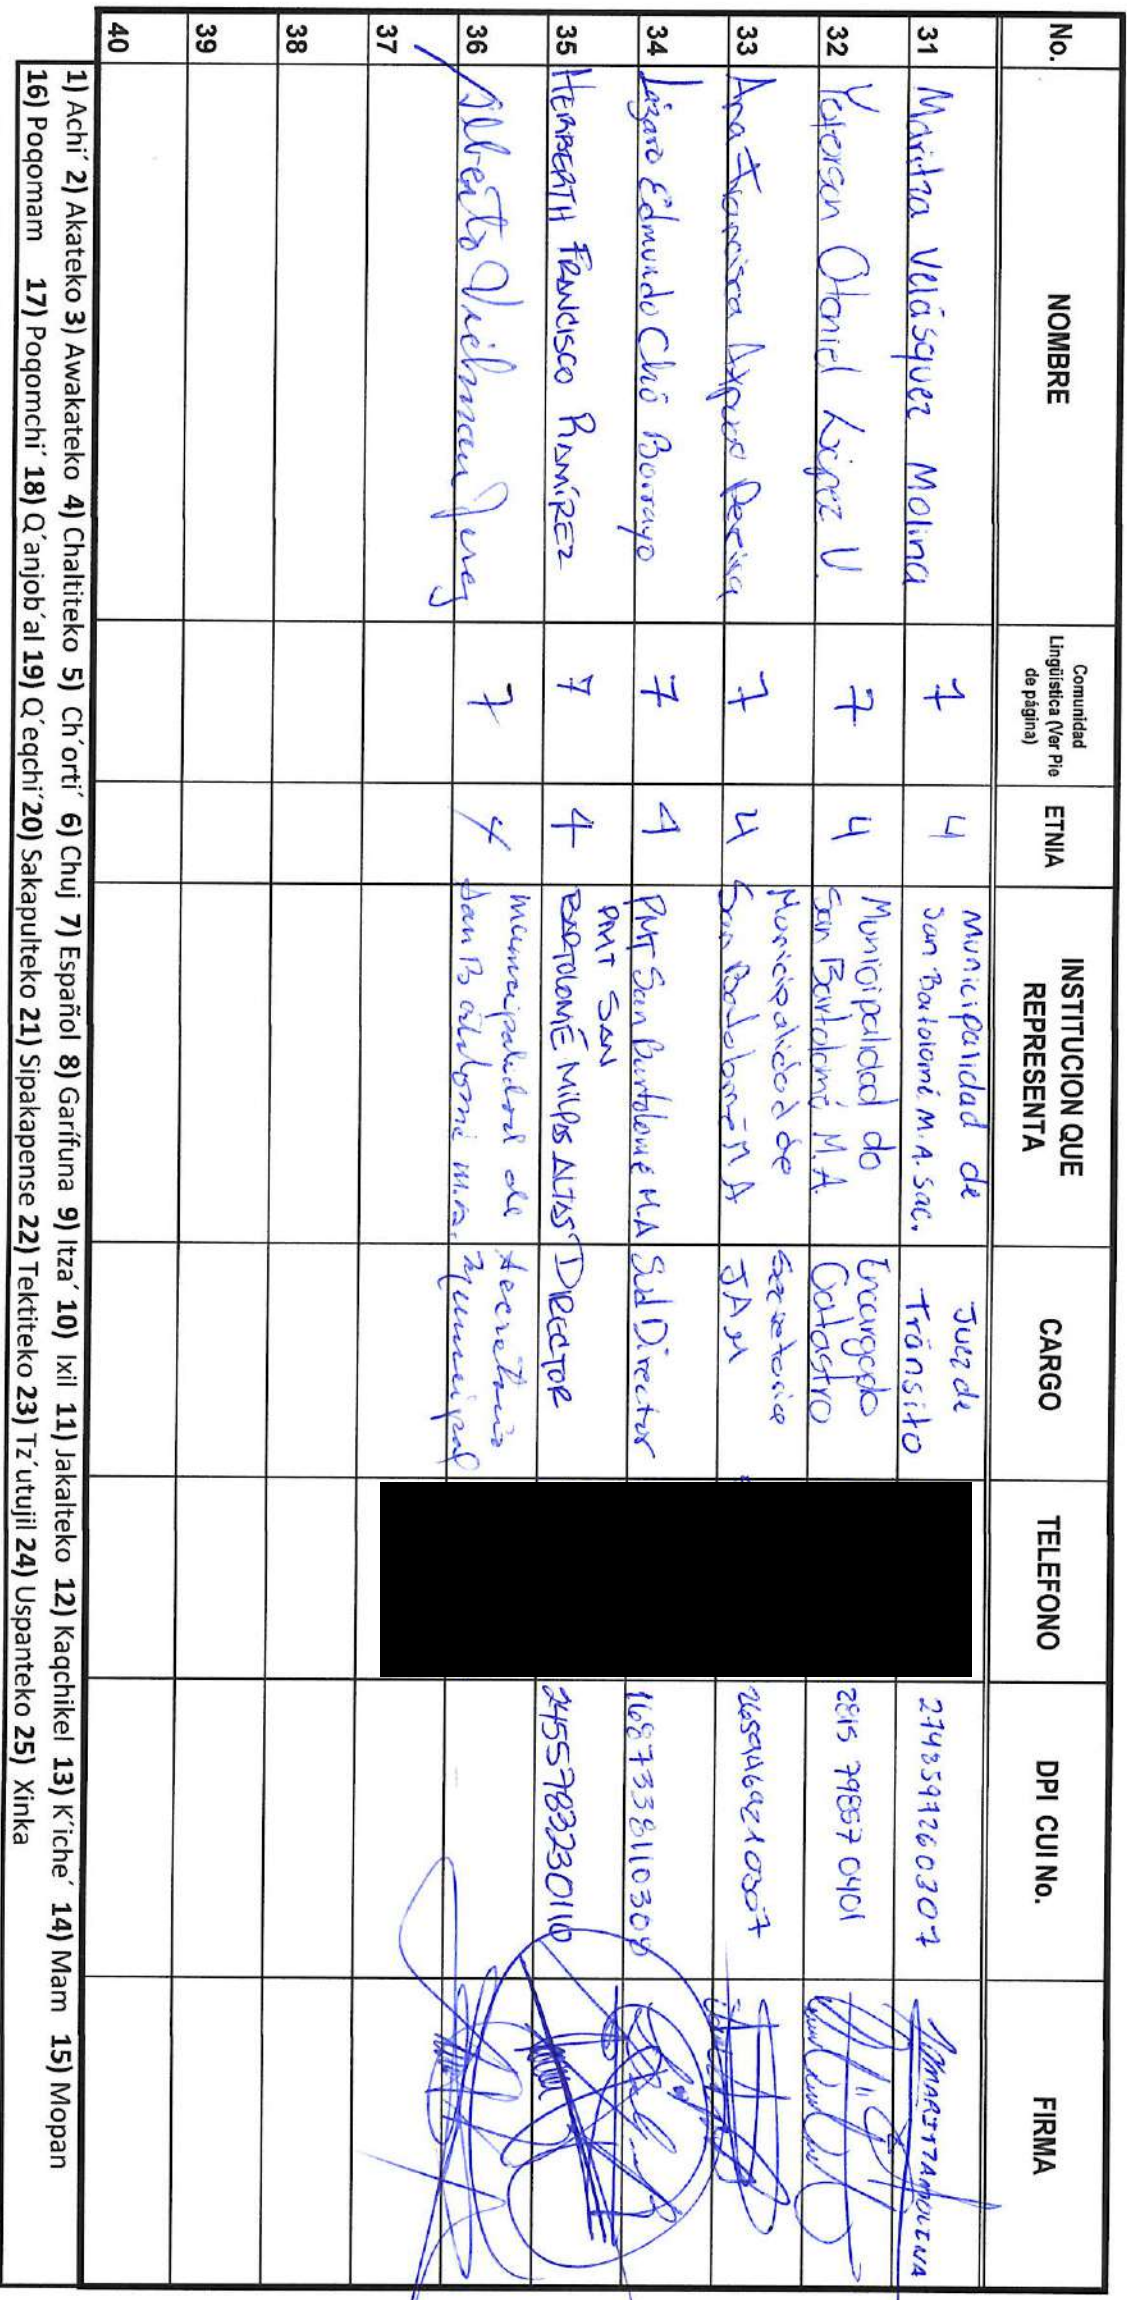 No. NOMBRE Comunidad Lingüistica (Ver Pie de página) ETNIA INSTITUCION QUE REPRESENTA CARGO TELEFONO DPI CUI No. FIRMA
31 Maritza Velásquez Molina 7 4 Municipalidad de San Bartolomé M.A. Sac. Juez de Tránsito 2748597260307 MARITZA MOLINA
32 Otoniel López V. 7 4 Municipalidad de San Bartolomé M.A. Encargado Catastro 2815 79857 0401
33 Ana Francisca 7 4 Municipalidad de San Bartolomé M A Secretaria JAM 2659469210307
34 Lázaro Edmundo Chó Borrayo 7 4 PMT San Bartolomé M.A Sub Director 1687338110308
35 HERBERTH FRANCISCO RAMÍREZ 7 4 PMT SAN BARTOLOMÉ MILPAS ALTAS DIRECTOR 2455783230110
36 Alberto 7 4 municipalidad de San Bartolomé M.A. Secretario Municipal
37
38
39
40
1) Achi´ 2) Akateko 3) Awakateko 4) Chaltiteko 5) Ch´orti´ 6) Chuj 7) Español 8) Garífuna 9) Itza´ 10) Ixil 11) Jakalteko 12) Kaqchikel 13) K´iche´ 14) Mam 15) Mopan
16) Poqomam 17) Poqomchi´ 18) Q´anjob´al 19) Q´eqchi´20) Sakapulteko 21) Sipakapense 22) Tektiteko 23) Tz´utujil 24) Uspanteko 25) Xinka